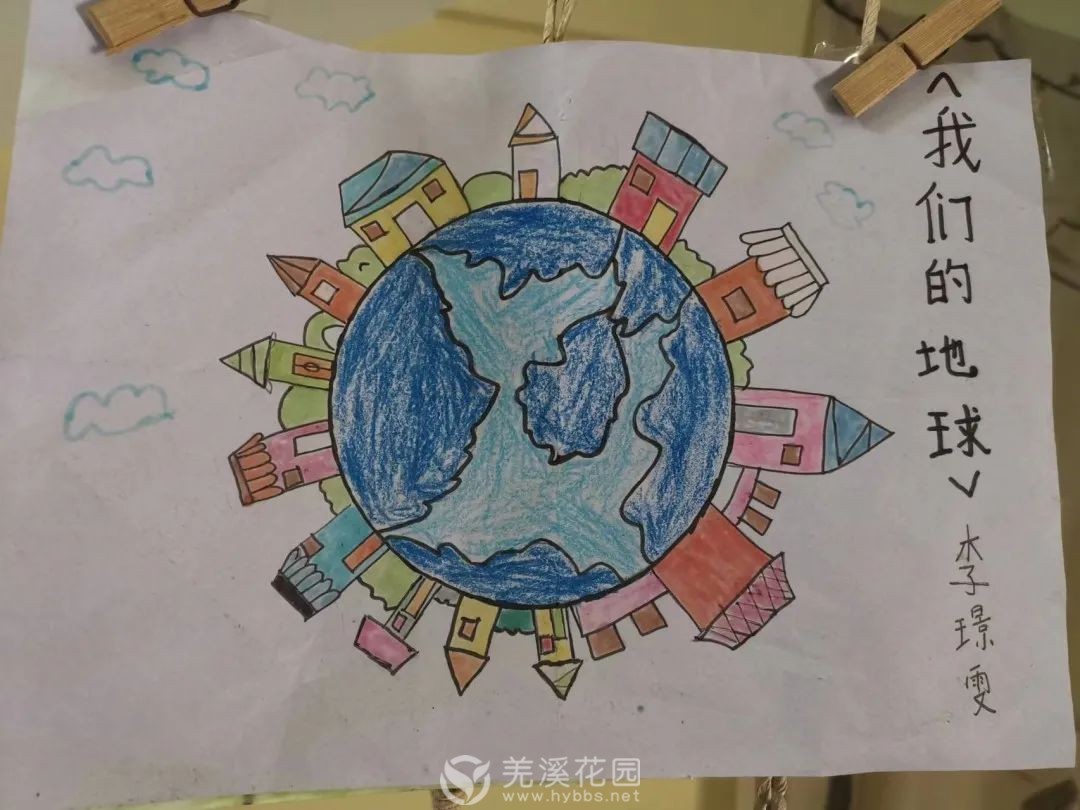 <我们的地球>
李璟雯
羌溪花园
www.hybbs.net